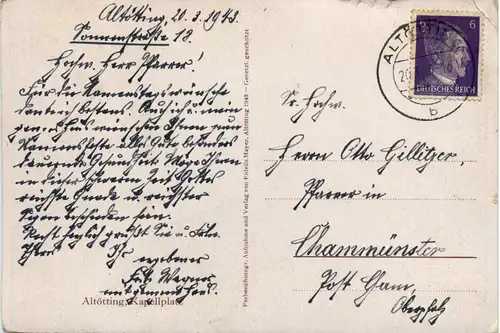 Altötting, 20.3.1943.
Sonnenstraße 18.
Hochw. Herr Pfarrer!
Für die Namenstagswünsche
danke ich bestens. Auch ich u. mein
ganzes Haus wünschen Ihnen zum
Namensfeste alles Gute besonders
dauernde Gesundheit. Möge Ihnen
in dieser schweren Zeit Gottes
reichste Gnade u. reichster
Segen beschieden sein.
Recht herzlich grüßt Sie u. Frln.
Ihr
ergebener
Wegner
mit ganzem Haus.
Altötting, Kapellplatz
Farbenphotogr. Aufnahme und Verlag von Fidelis Mayer, Altötting 1942 — Gesetzl. geschützt
ALTÖTTING
b
6
DEUTSCHES REICH
Sr. Hochw.
Herrn Otto Gillitzer,
Pfarrer in
Chammünster
Post Cham,
Oberpfalz